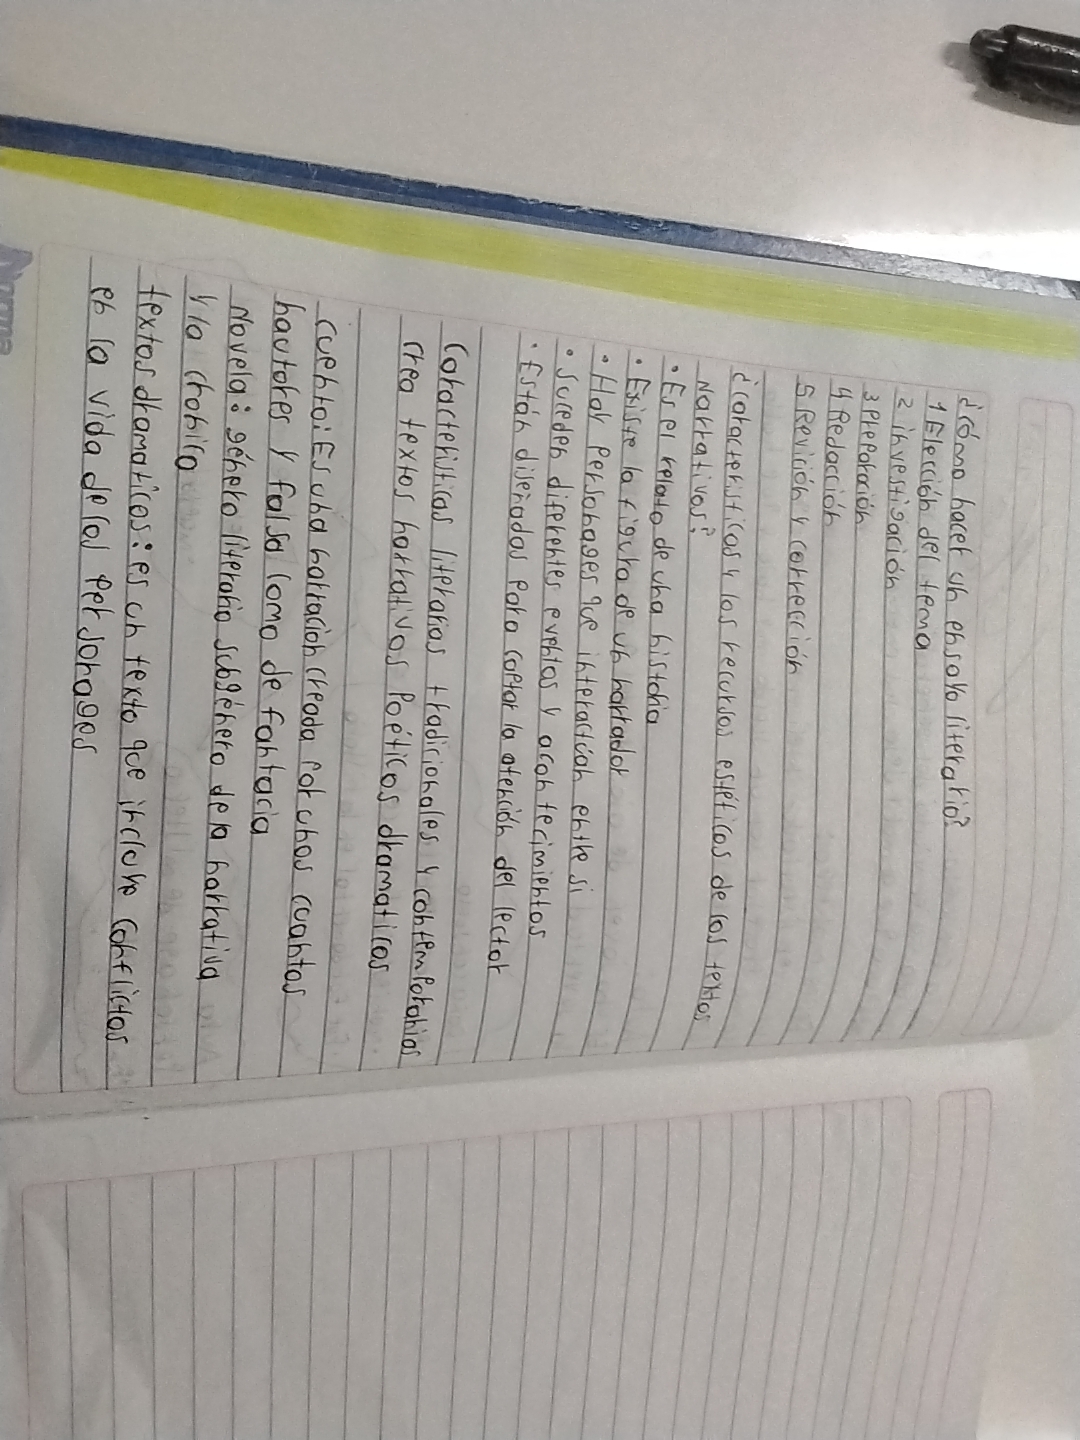 ¿Cómo hacer un ensayo literario?
1 Elección del tema
2 investigación
3 Preparación
4 Redacción
5 Revición y correción
¿caracteristicas y los recursos estéticos de los textos
Narrativos?
• Es el relato de una historia
• Existe la figura de un narrador
• Hay personages que interactúan entre si
• suceden diferentes eventos y acontecimientos
• Están diseñados para captar la atención del lector
Caracteristicas literarias tradicionales y contemporanias
crea textos narrativos Poéticos dramaticos
cuento: Es una narración creada por unos cuantos
hautores y falsa como de fantacia
Novela: género literario subgénero de la narrativa
y la chronica
textos dramaticos: es un texto que incluye conflictos
en la vida de los personages
Norma